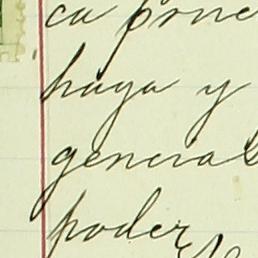 ca prue
haya y
general
poder